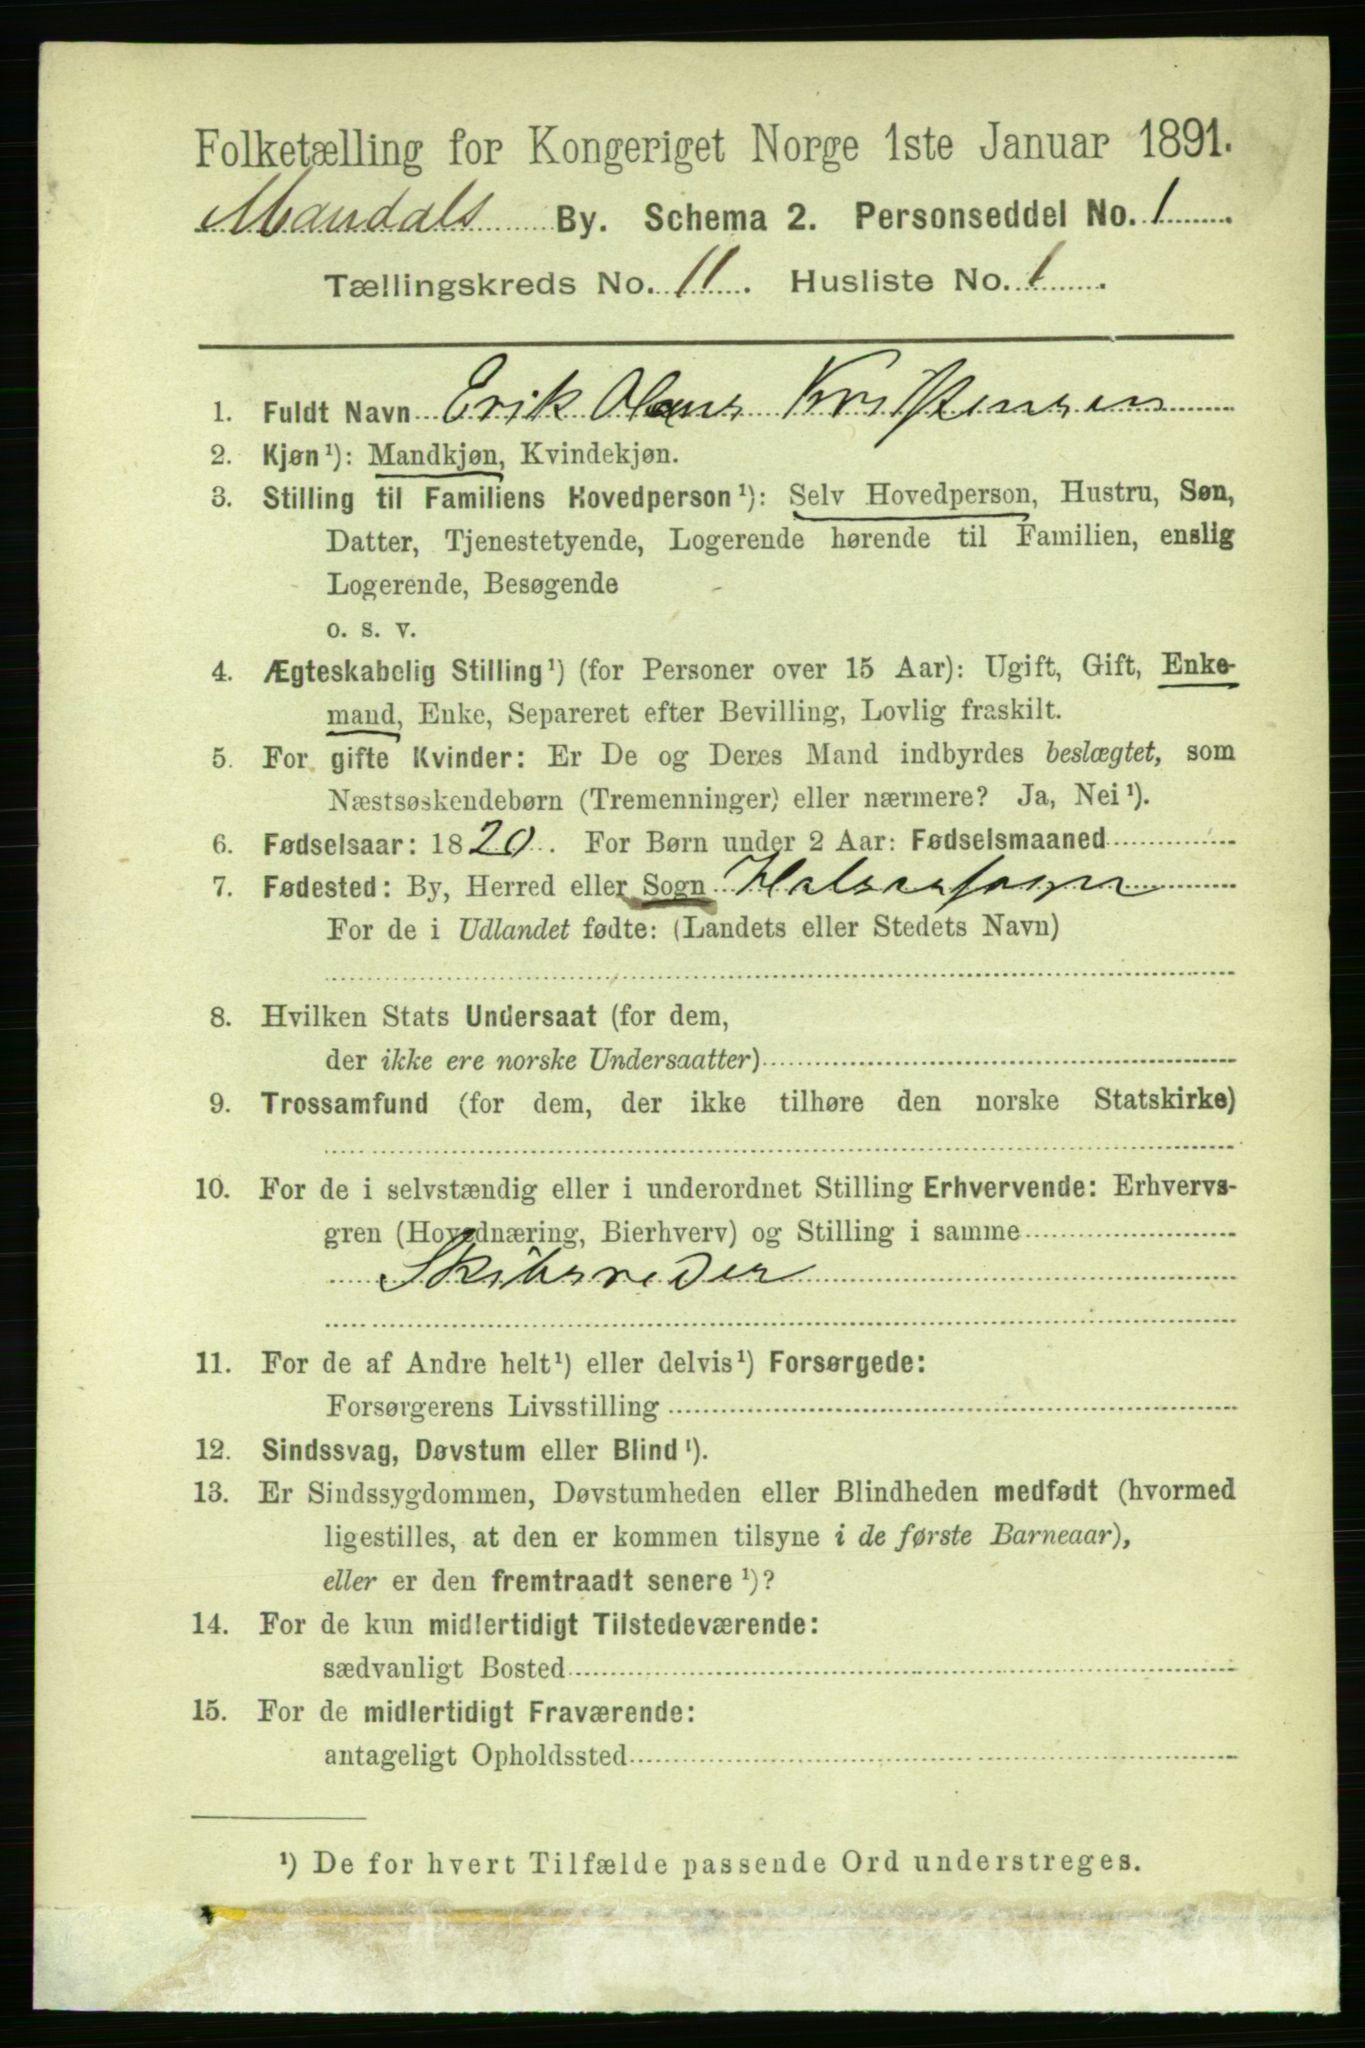 Folketælling for Kongeriget Norge 1ste Januar 1891.
Mandals By. Schema 2. Personseddel No. 1.
Tællingskreds No. 11. Husliste No. 1.
1. Fuldt Navn Erik Olaus Kristensen
2. Kjøn¹): Mandkjøn, Kvindekjøn.
3. Stilling til Familiens Hovedperson¹): Selv Hovedperson, Hustru, Søn,
Datter, Tjenestetyende, Logerende hørende til Familien, enslig
Logerende, Besøgende
o. s. v.
4. Ægteskabelig Stilling¹) (for Personer over 15 Aar): Ugift, Gift, Enke-
mand, Enke, Separeret efter Bevilling, Lovlig fraskilt.
5. For gifte Kvinder: Er De og Deres Mand indbyrdes beslægtet, som
Næstsøskendebørn (Tremenninger) eller nærmere? Ja, Nei¹).
6. Fødselsaar: 1820. For Børn under 2 Aar: Fødselsmaaned
7. Fødested: By, Herred eller Sogn Halsaasogn
For de i Udlandet fødte: (Landets eller Stedets Navn)
8. Hvilken Stats Undersaat (for dem,
der ikke ere norske Undersaatter)
9. Trossamfund (for dem, der ikke tilhøre den norske Statskirke)
10. For de i selvstændig eller i underordnet Stilling Erhvervende: Erhvervs-
gren (Hovednæring, Bierhverv) og Stilling i samme
Skibsreder
11. For de af Andre helt¹) eller delvis¹) Forsørgede:
Forsørgerens Livsstilling
12. Sindssvag, Døvstum eller Blind¹).
13. Er Sindssygdommen, Døvstumheden eller Blindheden medfødt (hvormed
ligestilles, at den er kommen tilsyne i de første Barneaar),
eller er den fremtraadt senere¹)?
14. For de kun midlertidigt Tilstedeværende:
sædvanligt Bosted
15. For de midlertidigt Fraværende:
antageligt Opholdssted
¹) De for hvert Tilfælde passende Ord understreges.